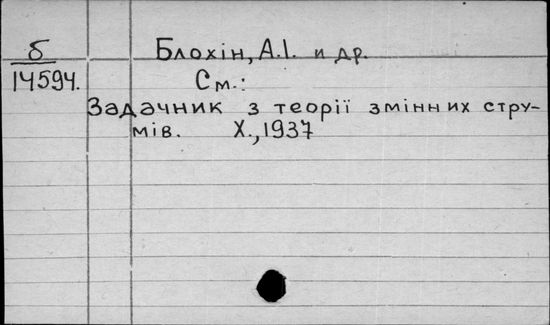 б
14594.
Блохін, А.І. и др.
См.:
Задачник з теорії змінних стру-
мів. Х., 1937